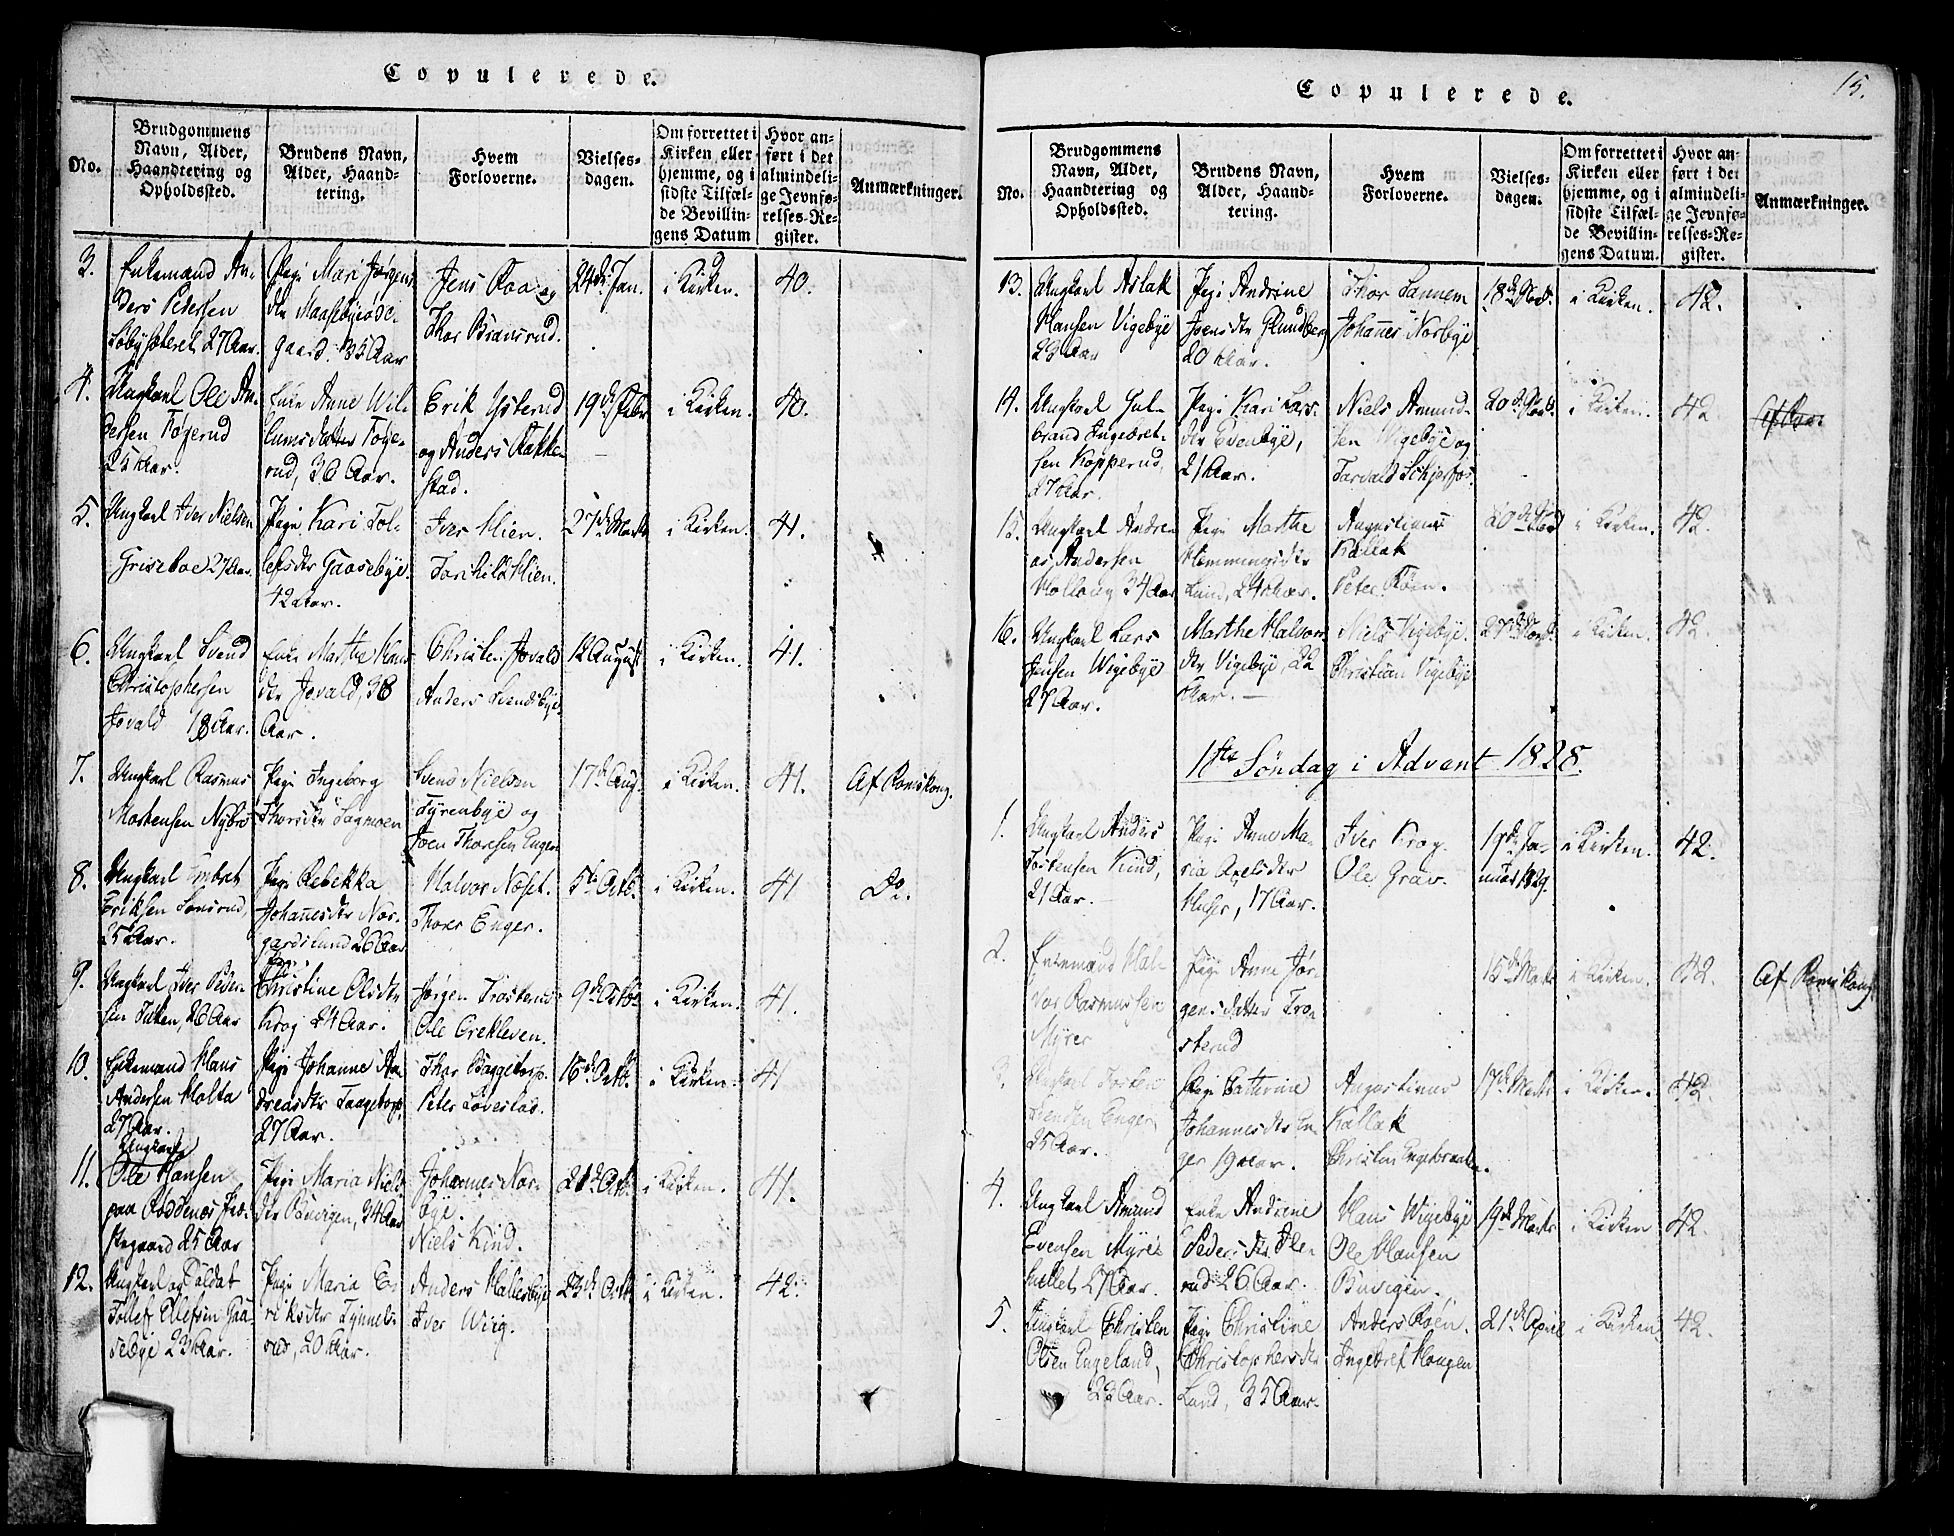 Copulerede.
No.
Brudgommens
Navn, Alder,
Haandtering og
Opholdssted.
Brudens Navn,
Alder, Haand-
tering.
Hvem
Forloverne.
Vielses-
dagen.
Om forrettet i
Kirken eller
hjemme, og i
sidste Tilfæl-
de Bevillin-
gens Datum
Hvor an-
ført i det
almindeli-
ge Jevnfø-
relses-Re-
gister.
Anmærkninger.
3.
Enkemand An-
ders Pedersen
27 Aar.
Pige Mari Jørgens
dtr
gaard. 35 Aar
Jens Roa og
Thor Bransrud.
24de Jan.
i Kirken.
40.
4.
Ungkarl Ole An-
dersen Føjerud
25 Aar.
Enke Anne Wil-
lumsdatter Føje-
rud, 36 Aar.
Erik Ysterud
og Anders Rakke-
stad.
19de Febr
i Kirken.
40.
5.
Ungkarl Iver Nielsen
Griseboe 27 Aar.
Pige Kari Tol-
lefsdtr Gaasebye.
42 Aar.
Iver Mien.
Torkild Mien.
27de Marts
i Kirken.
41.
6.
Ungkarl Svend
Christophersen
Jovald 18 Aar.
Enke Marthe Hans
dtr Jovald, 38
Aar.
Christen Jovald
Anders Svendsbye.
12 August
i Kirken.
41.
7.
Ungkarl Rasmus
Mortensen Nybro
Pige Ingeborg
Thorsdtr Lagmoen
Svend Nielsen
Tyrenbye og
Joen Thoresen Enger
17de Aug.
i Kirken.
41.
Af Romskoug.
8.
Ungkarl Embret
Eriksen
25 Aar.
Pige Rebekka
Johannesdtr Nor-
gardslund 26 Aar
Halvor Næset.
Thorer Enger.
5te Octb.
i Kirken.
41
Do.
9.
Ungkarl Iver Peder-
sen 26 Aar
Pige
Christine Olsdtr
Krog 24 Aar.
Jørgen Trosterud
Ole Grekleven.
9de Octb.
i Kirken.
41.
10.
Enkemand Hans
Andersen Molta
27 Aar.
Pige Johanne An
dreasdtr Taagetorp
27 Aar.
Thor Baggetorp.
Peter Løveslas.
16de Octb.
i Kirken.
41
11.
Ungkarl
Ole Hansen
paa Røddenøs Præ-
stegaard 25 Aar
Pige Maria Niels
dtr Buvigen, 24 Aar
Johannes Nor-
bye.
Niels Kind.
21de Octb.
i Kirken.
41.
12.
Ungkarl og Soldat
Tollef Olefsen Gaa
sebye 23 Aar.
Pige Maria E-
riksdtr Tynnels-
rud, 20 Aar.
Anders Hallesbye
Iver Wiig.
23de Octb.
i Kirken.
42.
Copulerede.
15.
No.
Brudgommens
Navn, Alder,
Haandtering og
Opholdssted.
Brudens Navn,
Alder, Haand-
tering.
Hvem
Forloverne.
Vielses-
dagen.
Om forrettet i
Kirken eller
hjemme, og i
sidste Tilfæl-
de Bevillin-
gens Datum.
Hvor an-
ført i det
almindeli-
ge Jevnfø-
relses-Re-
gister.
Anmærkninger.
13.
Ungkarl Aslak
Hansen Vigebye
23 Aar
Pige Andrine
Joensdtr Grundberg
20 Aar.
Thor Sannem
Johannes Norbye
18de Novb.
i Kirken.
42.
14.
Ungkarl Gul-
brand Ingebret-
sen Kopperud,
27 Aar.
Pige Kari Lars-
dtr Evenbye,
21 Aar.
Niels Amund-
sen Wigebye og
Torvald
20de Novb.
i Kirken.
42.
15.
Ungkarl Andre
as Andersen
34 Aar
Pige Marthe
Hemmingsdtr
Lund, 24 Aar.
Augustinus
Kallak
Peter Røen.
20de Nov
i Kirken.
42
16.
Ungkarl Lars
Jensen Wigebye
27 Aar.
Marthe Halvors
dtr Vigebye, 22
Aar.
Niels Vigebye.
Christian Vigebye
27de Novb.
i Kirken.
42.
1ste Søndag i Advent 1828.
1.
Ungkarl Anders
Torstensen Kind,
21 Aar.
Pige Anne Ma-
ria Axelsdtr
Huser, 17 Aar.
Iver Krog.
Ole Grav.
1ste Ja-
nuar 1829.
i Kirken.
42.
2.
Enkemand Hal-
vor Rasmussen
Myrer
Pige Anne Jør-
gensdatter Tro-
sterud
15de Marts
i Kirken.
42.
Af Romskoug
3.
Ungkarl Torsten
Svendsen Enger
25 Aar.
Pige Cathrine
Johannesdtr En-
ger 19 Aar.
Augustinus
Kallak
Christen Engebraaten.
17de Marts
i Kirken.
42.
4.
Ungkarl Amund
Evensen Myre
27 Aar.
Enke Andrine
Pedersdtr Ole-
rud 26 Aar.
Hans Wigebye
Ole Hansen
Buvigen.
19de Marts
i Kirken
42
5.
Ungkarl Christen
Olsen Engeland,
22 Aar.
Pige Christine
Christophersdtr
Lund, 35 Aar.
Anders Røen.
Ingebret Hougen
21de April
i Kirken
42.